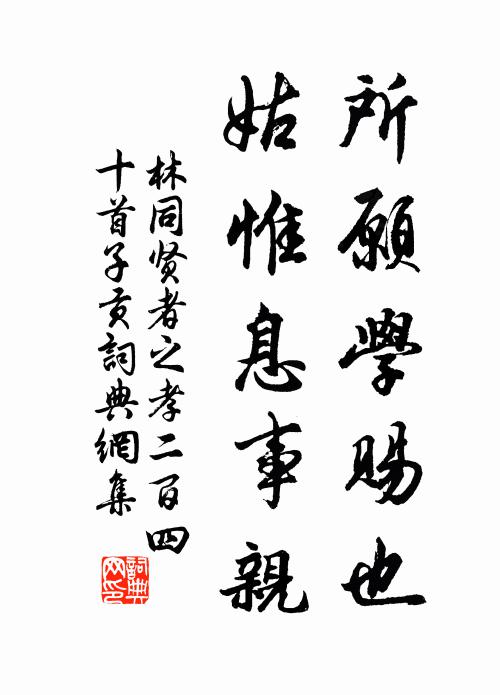 所願學賜也
姑惟息事親
林同贤者之孝二百四
十首子贡詞典網集
詞典
网印